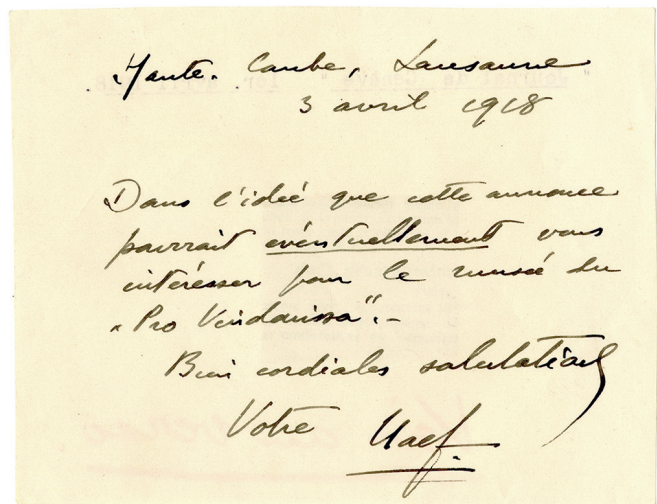 Haute-Combe, Lausanne
3 avril 1918
Dans l'idée que cette annonce
pourrait éventuellement vous
intéresser pour le musée du
„Pro Vindonissa".-
Bien cordiales salutations
Votre Naef.
"Journal de Genève" 1er avril 1918